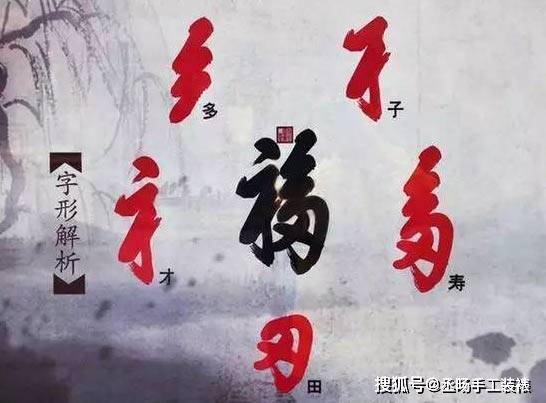 多
子
字形解析
福
才
寿
田
搜狐号@丞旸手工装裱